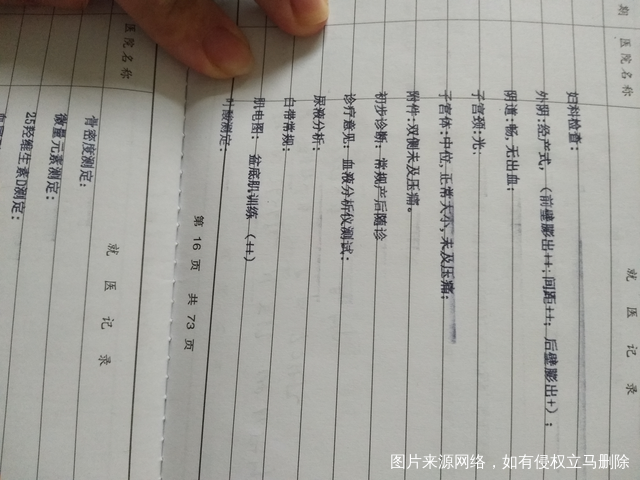 期 医院名称 就医记录
妇科检查：
外阴：经产式，（前壁膨出++；间距++；后壁膨出+）；
阴道：畅，无出血；
子宫颈：光；
子宫体：中位，正常大小，未及压痛；
附件：双侧未及压痛。
初步诊断：常规产后随诊
诊疗意见：血液分析仪测试：
尿液分析：
白带常规：
肌电图： 盆底肌训练（++）
叶酸测定：
第 16 页 共 73 页
医院名称 就医记录
骨密度测定：
微量元素测定：
25羟维生素D测定：
图片来源网络，如有侵权立马删除